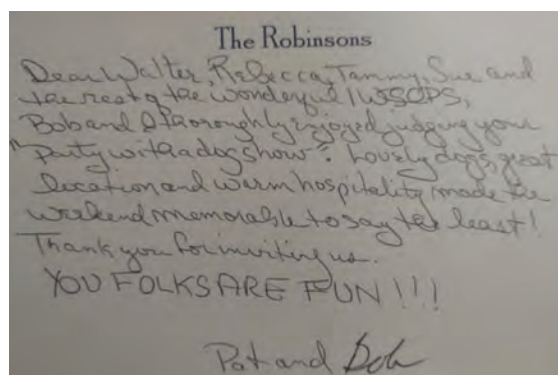 The Robinsons
Dear Walter, Rebecca, Tammy, Sue and
the rest of the wonderful IWSOPS,
Bob and I thoroughly enjoyed judging your
"Party with a dog show". Lovely dogs, great
location and warm hospitality made the
weekend memorable to say the least!
Thank you for inviting us.
YOU FOLKS ARE FUN!!!
Pat and Bob